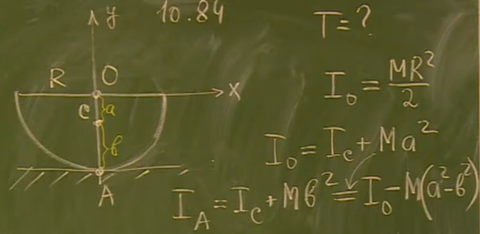 y 10.84 T=?
R O x
C a
b
A
I₀ = MR²/2
I₀ = I_C + Ma²
I_A = I_C + Mb² = I₀ - M(a²-b²)